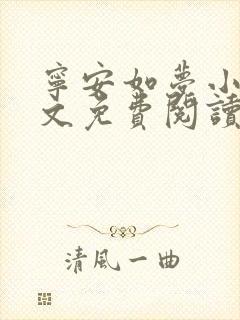 寧安如夢小
文免費閱讀
清風一曲